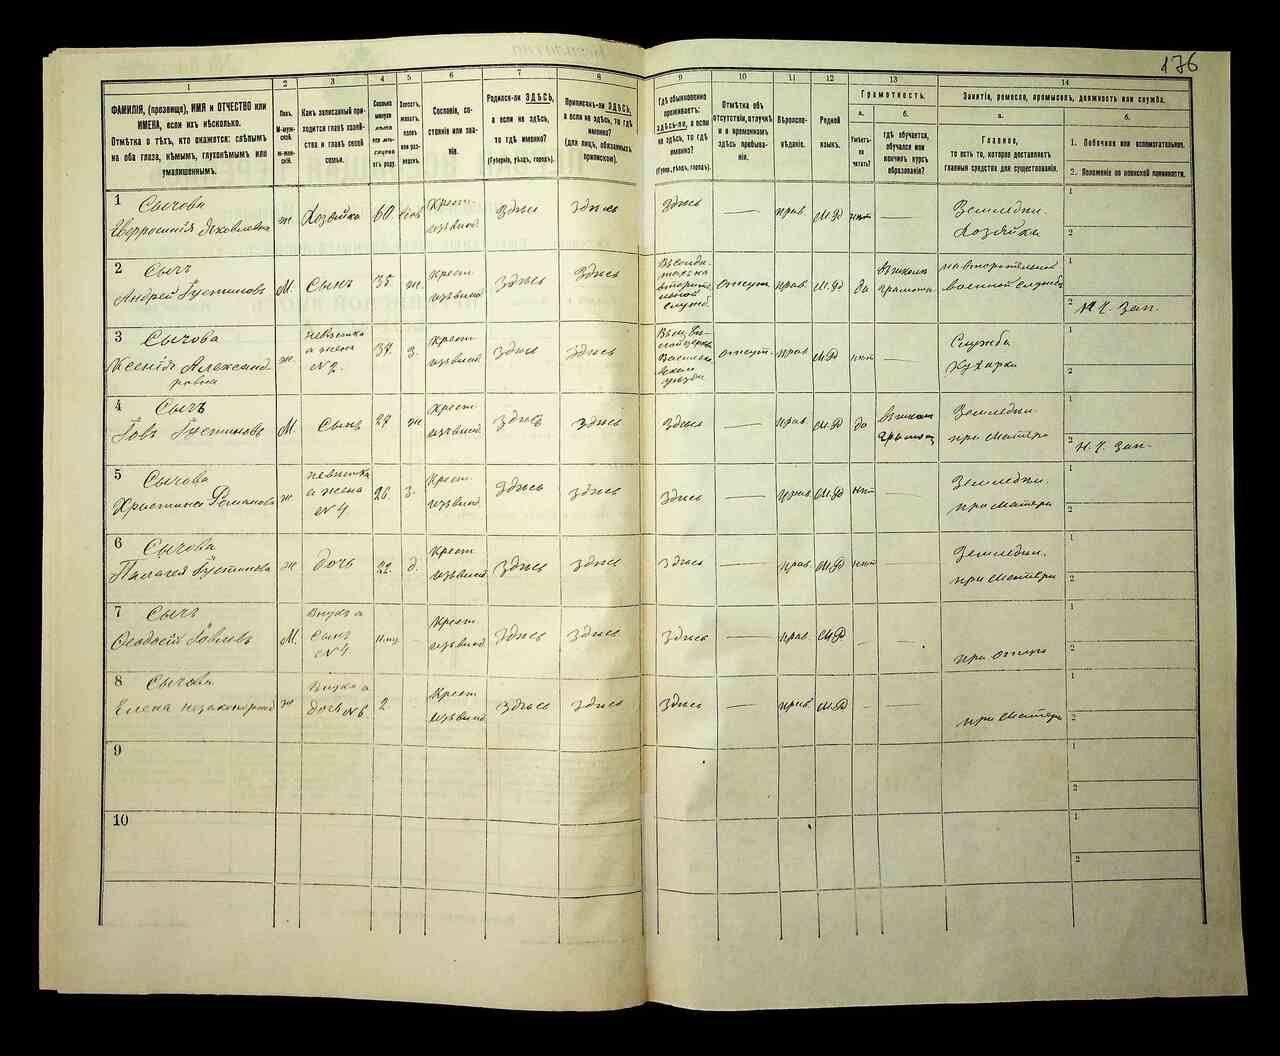 176
1 2 3 4 5 6 7 8 9 10 11 12 13 14
ФАМИЛІЯ, (прозвище), ИМЯ и ОТЧЕСТВО или
ИМЕНА, если ихъ нѣсколько.
Отмѣтка о тѣхъ, кто окажется: слѣпымъ
на оба глаза, нѣмымъ, глухонѣмымъ или
умалишеннымъ.
Полъ.
М-мужской.
Ж-женскій.
Какъ записанный при-
ходится главѣ хозяй-
ства и главѣ своей
семьи.
Сколько
минуло
лѣтъ
Сословіе, со-
стояніе или зва-
ніе.
Родился-ли ЗДѢСЬ,
а если не здѣсь,
то гдѣ именно?
(Губернія, уѣздъ, городъ).
Приписанъ-ли ЗДѢСЬ,
а если не здѣсь, то гдѣ
именно?
(для лицъ, обязанныхъ
припискою).
Гдѣ обыкновенно
проживаетъ:
здѣсь-ли, а если
не здѣсь, то гдѣ
именно?
(Губер., уѣздъ, городъ).
Отмѣтка объ
отсутствіи, отлучкѣ
и о временномъ
здѣсь пребыва-
ніи.
Вѣроиспо-
вѣданіе.
Родной
языкъ.
Грамотность.
а.
Умѣетъ-
ли
читать?
б.
гдѣ обучается,
обучался или
кончилъ курсъ
образованія?
Занятіе, ремесло, промыселъ, должность или служба.
а.
Главное,
то есть то, которое доставляетъ
главныя средства для существованія.
б.
1. Побочное или вспомогательное.
2. Положеніе по воинской повинности.
1 Сычова
Яковлевна
ж Хозяйка 60 вдов Крест. Здѣсь Здѣсь Здѣсь — прав М.Р нѣт —
Земледел.
Хозяйка
1
2
2 Сычъ
Андрей Густиновъ
М Сынъ 35 ж. Крест. Здѣсь Здѣсь
отсут. прав. М.Р да
грамота
военной службѣ
1
2 Н.Ч. Зап.
3 Сычова
Ксенія Александ
ровна
ж. невѣстка
а жена
N 2.
з. Крест. Здѣсь Здѣсь
отсут. прав М.Р нѣт —
Служба
Кухарка
1
2
4 Сычъ
Густиновъ
М. Сынъ 27 ж Крест. Здѣсь Здѣсь Здѣсь — прав М.Р да
Земледел.
при матери
1
2 Н.Ч. Зап.
5 Сычова
Христина Романова
ж. невѣстка
а жена
N 4
26 з. Крест. Здѣсь Здѣсь Здѣсь — прав. М.Р нѣт —
Земледел.
при матери
1
2
6 Сычова
Палагея Густинова
ж дочь 22. д. Крест Здѣсь Здѣсь Здѣсь — прав. М.Р нѣт —
Земледел.
при матери
1
2
7 Сычъ
Феодосій
М. Внукъ а
Сынъ
N 4.
Крест Здѣсь Здѣсь Здѣсь — прав М.Р —
при отцѣ
1
2
8 Сычова
Елена незаконорожд
ж Внука а
дочь N 6
2 Крест Здѣсь Здѣсь Здѣсь — прав. М.Р —
при матери
1
2
9
1
2
10
1
2